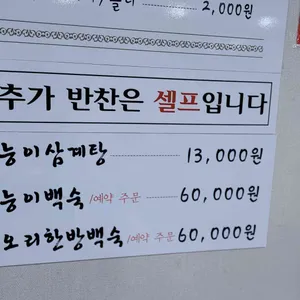 2,000원
추가 반찬은 셀프입니다
능이삼계탕 13,000원
능이백숙 /예약 주문 60,000원
오리한방백숙 /예약 주문 60,000원